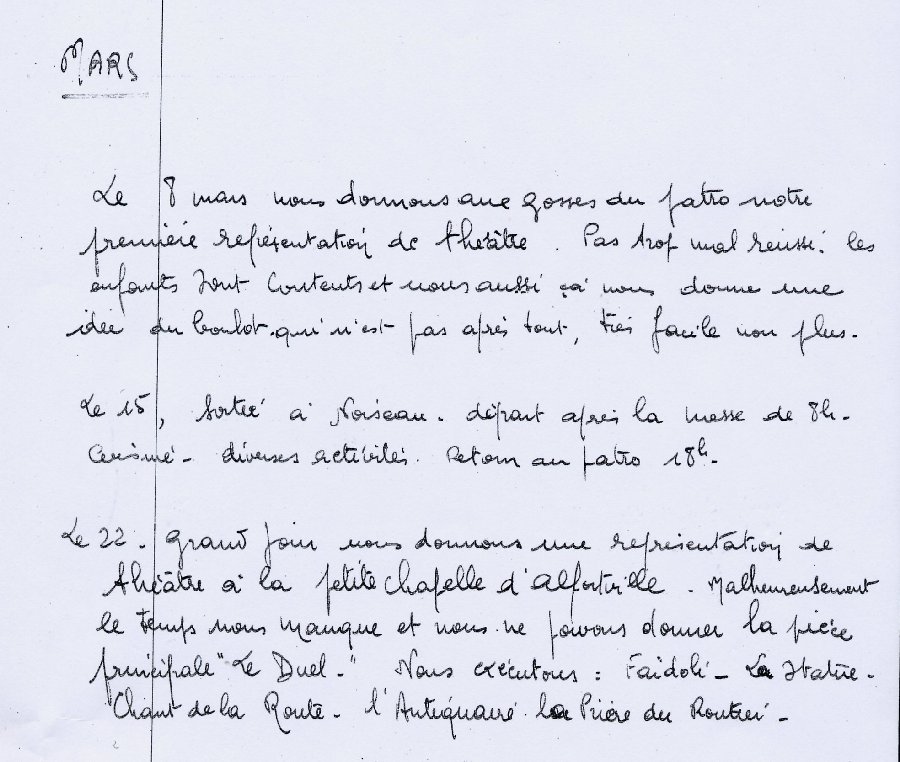 MARS
Le 8 mars nous donnons aux gosses du patro notre
première représentation de théâtre. Pas trop mal réussi. les
enfants sont contents et nous aussi ça nous donne une
idée du boulot. qui n'est pas après tout, très facile non plus.
Le 15, Sortie à Noiseau. départ après la messe de 8h.
Cuisine - diverses activités. Retour au patro 18h.
Le 22. Grand Jour nous donnons une représentation de
théâtre à la petite chapelle d'Alfortville. Malheureusement
le temps nous manque et nous ne pouvons donner la pièce
principale "Le Duel." Nous exécutons : Faïdoli - La Statue.
Chant de la Route. l'Antiquaire. la Prière du Routier -